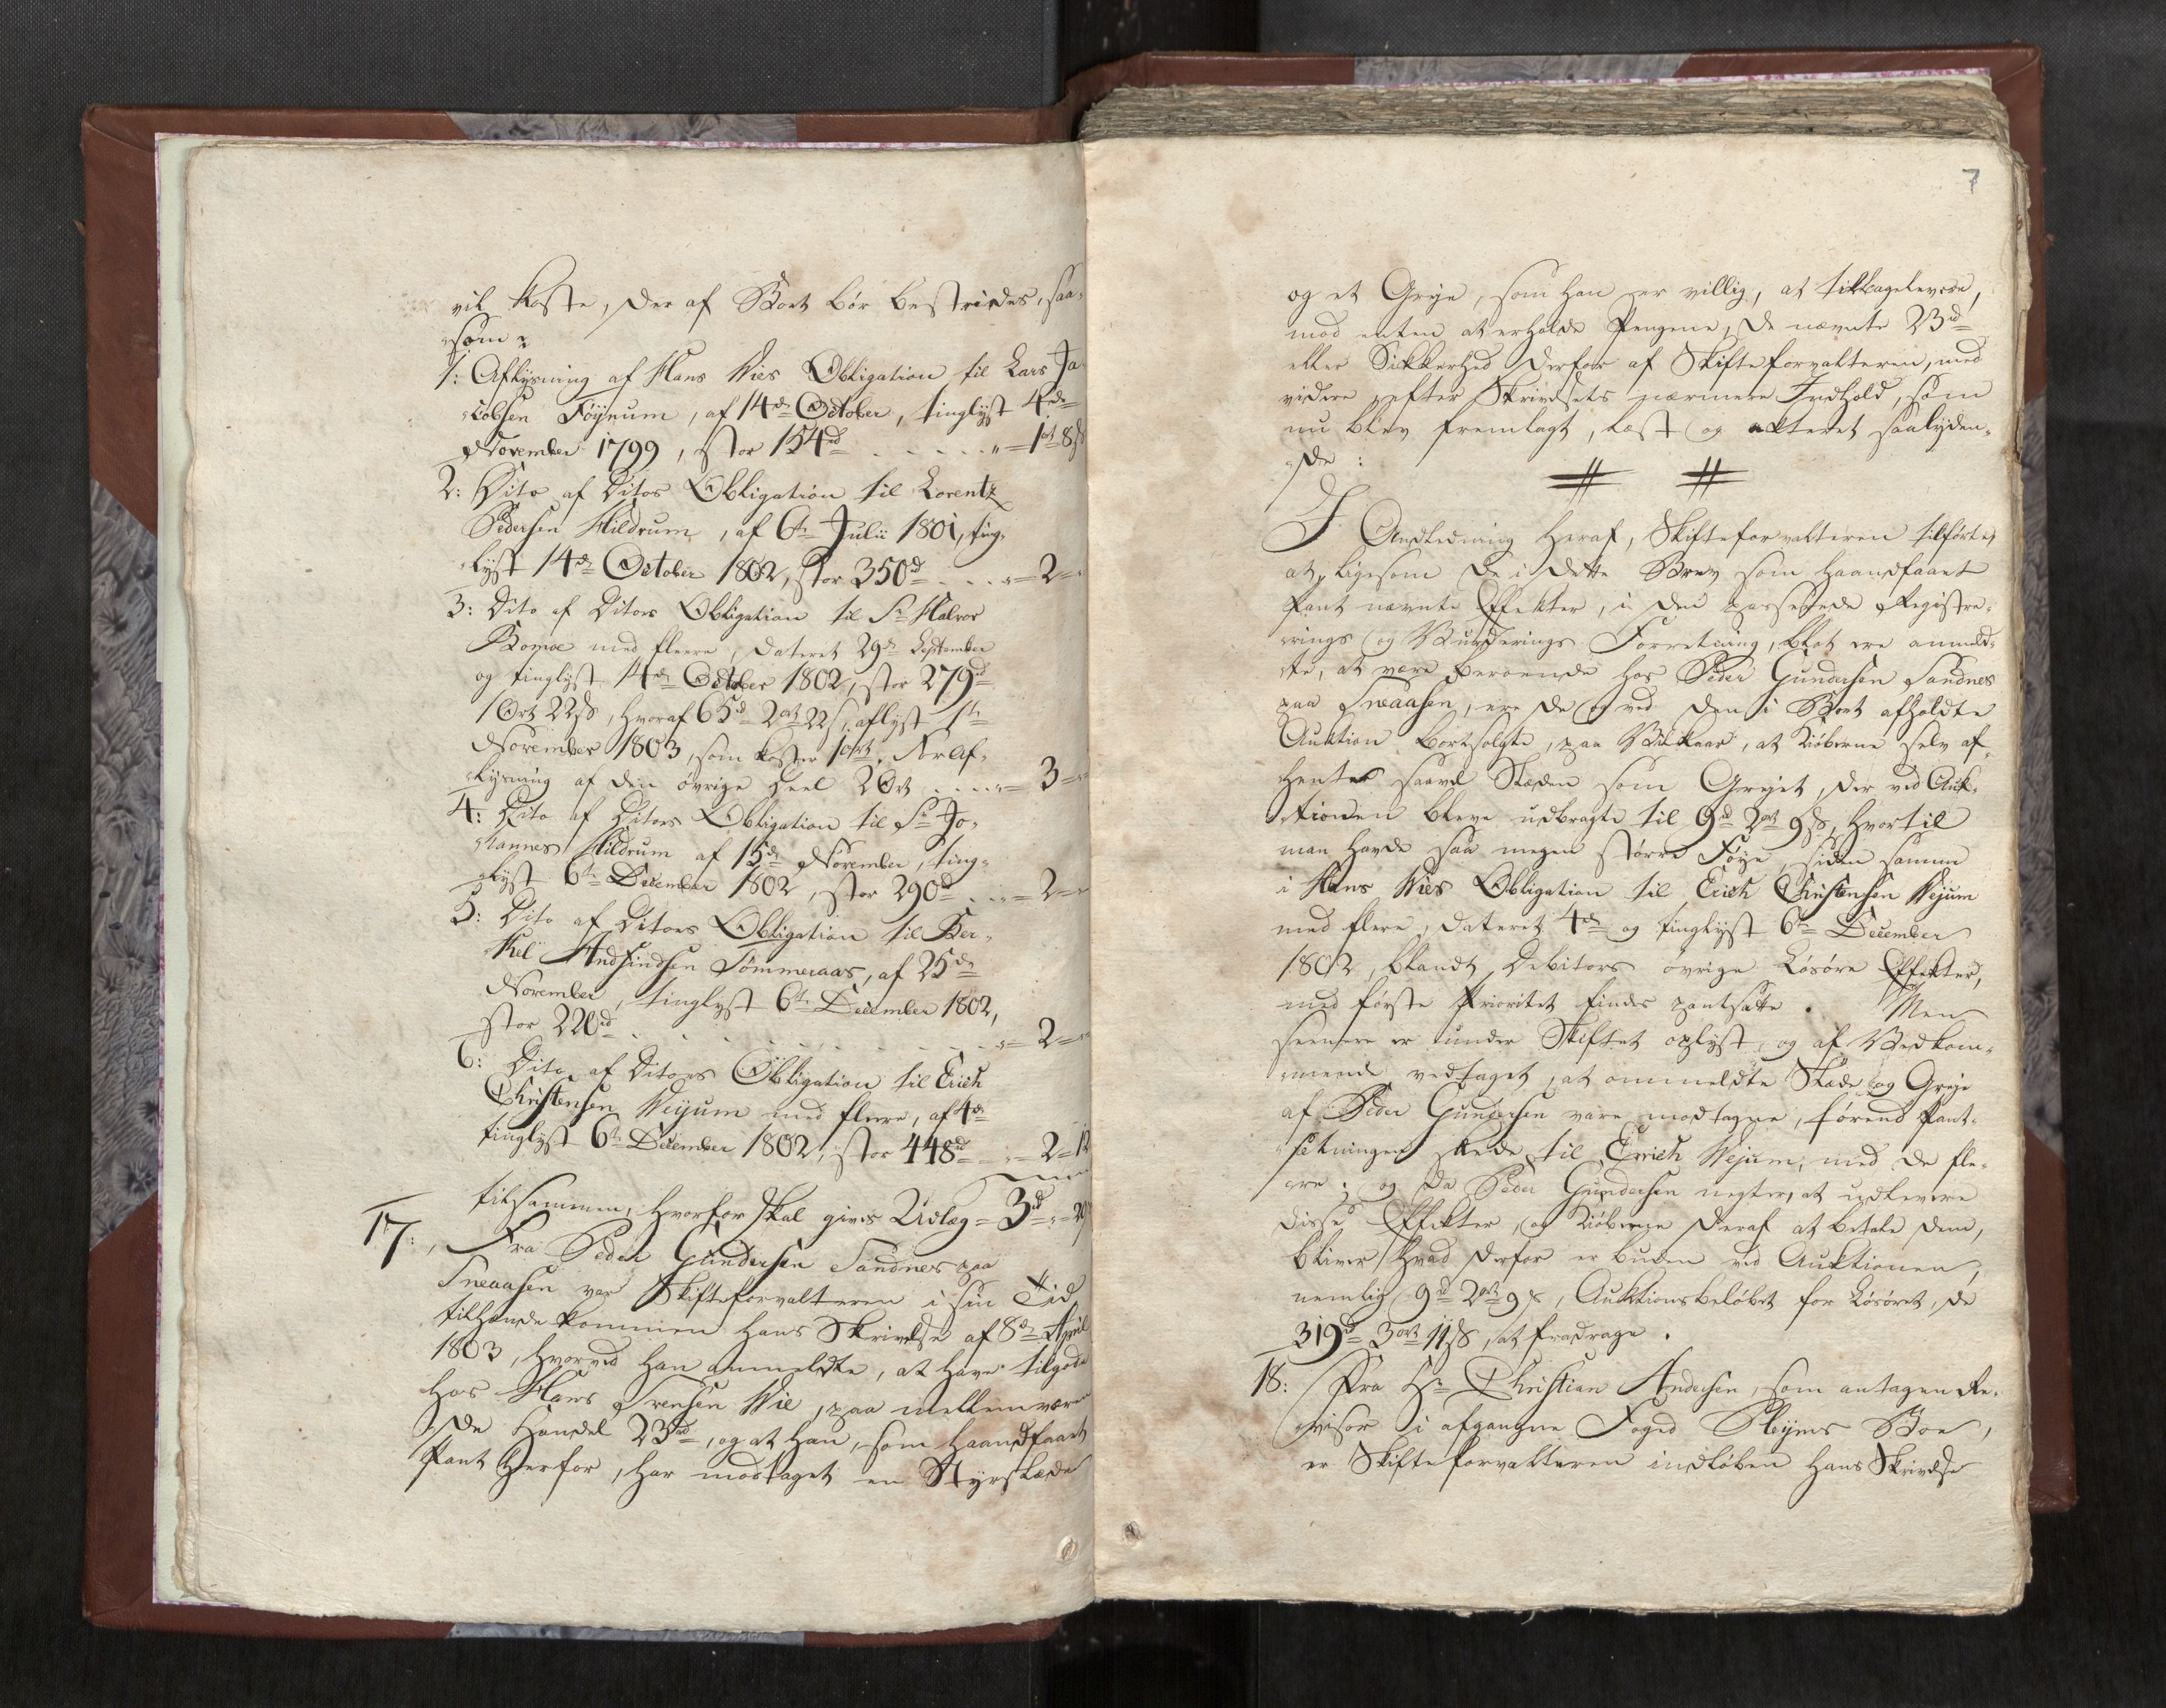 vil koste, der af Boet bør bestrides, saa-
som:
1: Aflysning af Hans Vies Obligation til Lars Ja-
cobsen Føynum, af 14de October, tinglyst 4de
November 1799, stor 154rd . . . . . " = 1ort 8s
2: Dito af Ditos Obligation til Lorentz
Pedersen Hildrum, af 6te Julii 1801, ting-
lyst 14de October 1802, stor 350rd . . . " = 2 = "
3: Dito af Ditoes Obligation til Sr Halvor
Bomoe med fleere, dateret 29de September
og tinglyst 14de October 1802, stor 279rd
1 Ort 22s, hvoraf 65rd 2ort 22s, aflyst 1te
November 1803, som koster 1ort. For Af-
lysning af den øvrige Deel 2 Ort . . . . " = 3 = "
4: Dito af Ditoes Obligation til Sr Jo-
hannes Hildrum af 15de November, ting-
lyst 6te December 1802, stor 290rd . . " = 2 = "
5: Dito af Ditoes Obligation til Ber-
Andfindsen Sømmeraas, af 25de
November, tinglyst 6te December 1802,
stor 220rd . . . . . . . . " = 2 = "
6: Dito af Ditoes Obligation til Erich
Christensen Vejum med fleere, af 4de
tinglyst 6te December 1802, stor 448rd . . " = 2 = 12
tilsammen, hvorfor skal gives Udlæg = 3rd " = 20s
17: Fra Peder Gundersen Sandnes paa
Sneaasen var Skifteforvalteren i sin Tid
tilhænde kommen hans Skrivelse af 8de April
1803, hvorved han anmeldte, at have tilgode
hos Hans Svensen Vie, paa mellemværen-
de Handel 23rd, og at han, som haandfaaet
Pant herfor, har modtaget en Styrslæde
7
og et Greye, som han er villig, at tilbagelevere,
mod enten at erholde Pengene, de nævnte 23rd
eller Sikkerhed derfor af Skifteforvalteren, med
videre, efter Skrivelsets nærmere Indhold, som
nu blev fremlagt, læst og acteret saalyden-
de:
# #
I Andledning heraf, Skifteforvalteren tilførte,
at, ligesom de i dette Brev som haandfaaet
Pant nævnte Effekter, i den passerede Registre-
rings og Vurderings Forretning, blot ere anmeld-
te, at være beroende hos Peder Gundersen Sandnes
paa Sneaasen, ere de og ved den i Boet afholdte
Auktion bortsolgte, paa Vilkaar, at Kiøberne selv af-
henter saavel Slæden som Greyet, der ved Auk-
tionen bleve udbragte til 9rd 2ort 9s, hvortil
man havde saa megen større Føye, siden samme
i Hans Vies Obligation til Erich Christensen Vejum
med flere, dateret 4de og tinglyst 6te December
1802, blandt Debitors øvrige Løsøre Effekter,
med første Prioritet findes pantsatte. Men
seenere er under Skiftet oplyst, og af Vedkom-
mende vedtaget, at ommeldte Slæde og Greye
af Peder Gundersen vare modtagne, førend Pant-
sætningen skede til Errich Vejum, med de fle-
ere; og da Peder Gundersen negter, at udlevere
disse Effekter, og Kiøberne deraf at betale dem,
bliver hvad derfor er buden ved Auktionen,
nemlig 9rd 2ort 9s, Auktionsbeløbet for Løsøret, de
319rd 3ort 11s, at fradrage.
18: Fra Hr Christian Andersen, som antagen Re-
visor i afgangne Foged Pleyms Boe,
er Skifteforvalteren indløben hans Skrivelse